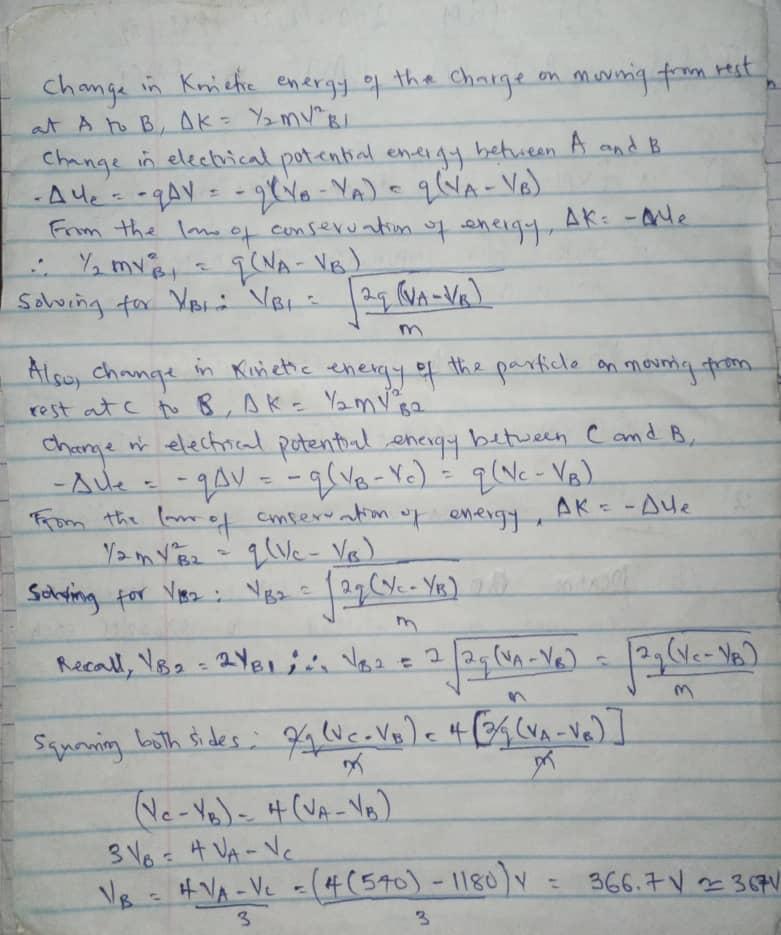 Change in Kinetic energy of the charge on moving from rest
at A to B, ΔK = ½mV²B1
Change in electrical potential energy between A and B
-ΔUe = -qΔV = -q(VB - VA) = q(VA - VB)
From the law of conservation of energy, ΔK = -ΔUe
∴ ½mv²B1 = q(VA - VB)
Solving for VB1 : VB1 = √2q(VA - VB)/m
Also, change in Kinetic energy of the particle on moving from
rest at C to B, ΔK = ½mv²B2
Change in electrical potential energy between C and B,
-ΔUe = -qΔV = -q(VB - VC) = q(VC - VB)
From the law of conservation of energy, ΔK = -ΔUe
½mV²B2 = q(VC - VB)
Solving for VB2 : VB2 = √2q(VC - VB)/m
Recall, VB2 = 2VB1 ; ∴ VB2 = 2√2q(VA - VB)/m = √2q(VC - VB)/m
Squaring both sides : 2q(VC - VB)/m = 4[2q(VA - VB)/m]
(VC - VB) = 4(VA - VB)
3VB = 4VA - VC
VB = 4VA - VC/3 = (4(540) - 1180)V/3 = 366.7V ≃ 367V